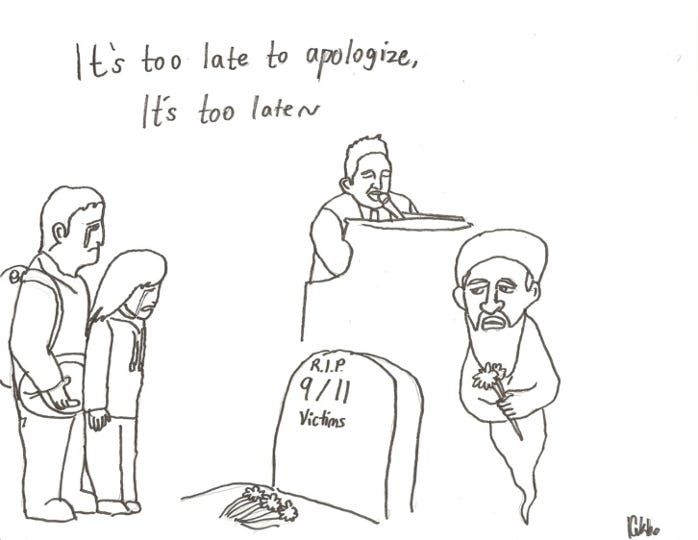 It's too late to apologize,
It's too late~
R.I.P.
9/11
Victims